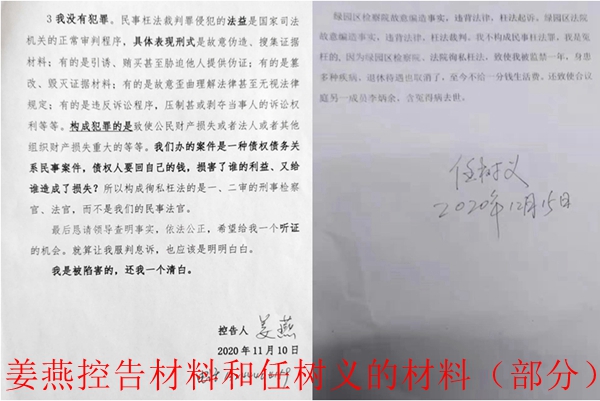 3 我没有犯罪。民事枉法裁判罪侵犯的法益是国家司法
机关的正常审判程序，具体表现形式是故意伪造、搜集证据
材料；有的是引诱、贿买甚至胁迫他人提供伪证；有的是篡
改、毁灭证据材料；有的是故意歪曲理解法律甚至无视法律
规定；有的是违反诉讼程序，压制甚或剥夺当事人的诉讼权
利等等。构成犯罪的是致使公民财产损失或者法人或者其他
组织财产损失重大的等等。我们办的案件是一种债权债务关
系民事案件，债权人要回自己的钱，损害了谁的利益、又给
谁造成了损失？所以构成徇私枉法的是一、二审的刑事检察
官、法官，而不是我们的民事法官。
最后恳请领导查明事实，依法公正，希望给我一个听证
的机会。就算让我服判息诉，也应该是明明白白。
我是被陷害的，还我一个清白。
控告人 姜燕
2020 年 11 月 10 日
绿园区检察院故意编造事实，违背法律，枉法起诉。绿园区法院
故意编造事实，违背法律，枉法裁判。我不构成民事枉法罪，我是冤
枉的。因为绿园区检察院、法院徇私枉法，致使我被监禁一年，身患
多种疾病，退休待遇也取消了，至今不给一分钱生活费。还致使合议
庭另一成员李炳余，含冤得病去世。
任树义
2020年12月15日
姜燕控告材料和任树义的材料（部分）